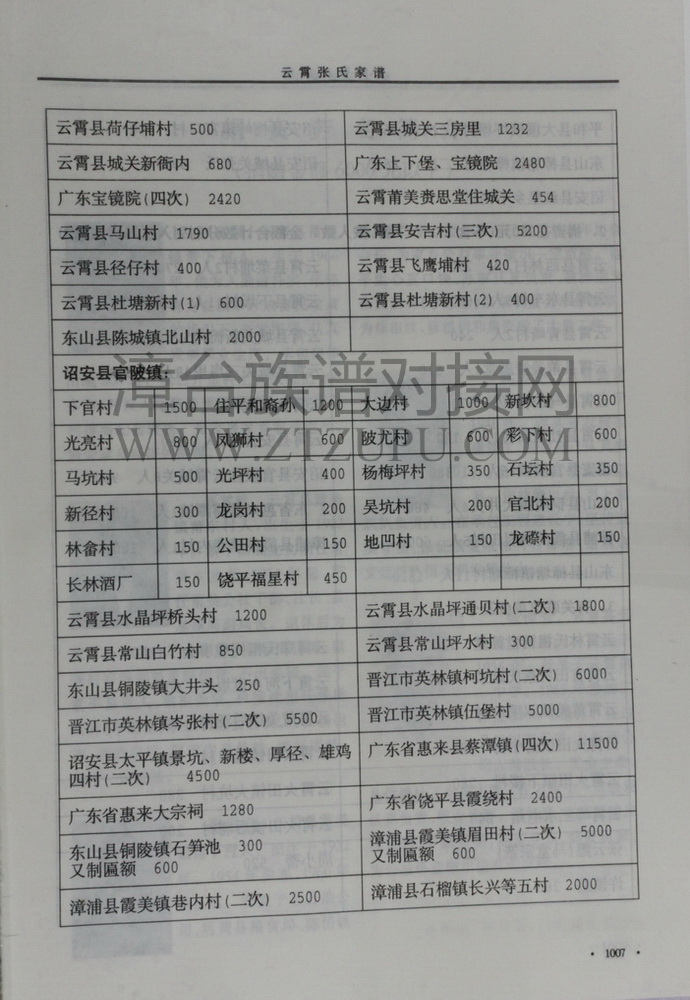 云霄张氏家谱
云霄县荷仔埔村 500 云霄县城关三房里 1232
云霄县城关新衙内 680 广东上下堡、宝镜院 2480
广东宝镜院(四次) 2420 云霄莆美赉思堂住城关 454
云霄县马山村 1790 云霄县安吉村(三次) 5200
云霄县径仔村 400 云霄县飞鹰埔村 420
云霄县杜塘新村(1) 600 云霄县杜塘新村(2) 400
东山县陈城镇北山村 2000
诏安县官陂镇:
下官村 1500 住平和裔孙 1200 大边村 1000 新坎村 800
光亮村 800 凤狮村 600 陂尤村 600 彩下村 600
马坑村 500 光坪村 400 杨梅坪村 350 石坛村 350
新径村 300 龙岗村 200 吴坑村 200 官北村 200
林畲村 150 公田村 150 地凹村 150 龙磜村 150
长林酒厂 150 饶平福星村 450
云霄县水晶坪桥头村 1200 云霄县水晶坪通贝村(二次) 1800
云霄县常山白竹村 850 云霄县常山坪水村 300
东山县铜陵镇大井头 250 晋江市英林镇柯坑村(二次) 6000
晋江市英林镇岑张村(二次) 5500 晋江市英林镇伍堡村 5000
诏安县太平镇景坑、新楼、厚径、雄鸡
四村(二次) 4500 广东省惠来县蔡潭镇(四次) 11500
广东省惠来大宗祠 1280 广东省饶平县霞绕村 2400
东山县铜陵镇石笋池 300 漳浦县霞美镇眉田村(二次) 5000
又制匾额 600 又制匾额 600
漳浦县霞美镇巷内村(二次) 2500 漳浦县石榴镇长兴等五村 2000
·1007·
漳台族谱对接网
WWW.ZTZUPU.COM